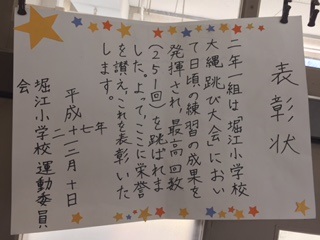 表彰状
二年一組は「堀江小学校
大縄跳び大会」におい
て日頃の練習の成果を
発揮され、最高回数
(251回)を跳ばれま
した。よって、ここに栄誉
を讃え、これを表彰いた
します。
平成二十七年
十二月十日
堀江小学校 運動委員
会